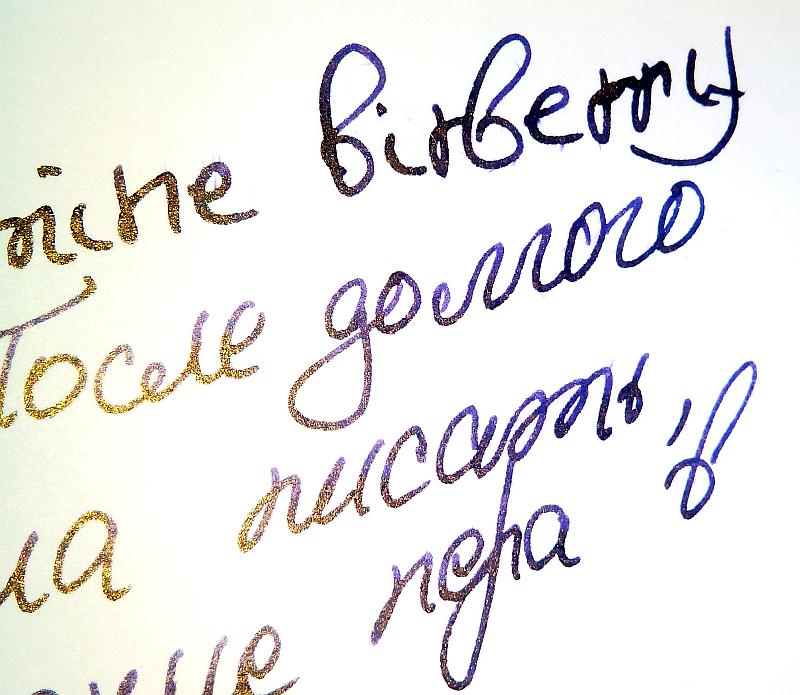 mine bilberry
После долгого
ла писать, в
пера